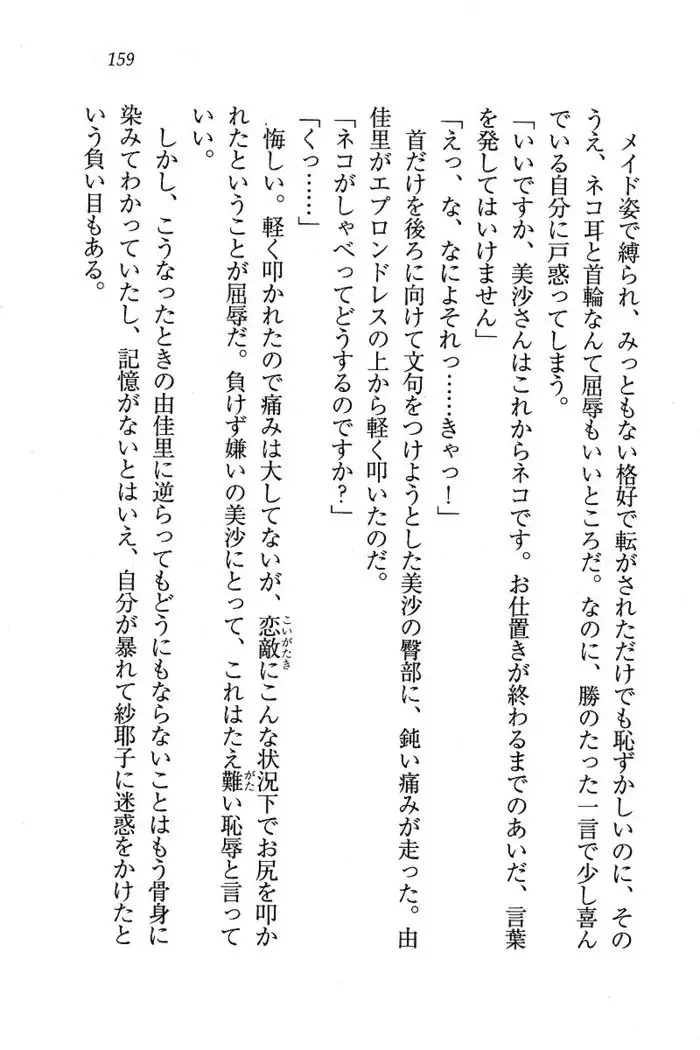 159
メイド姿で縛られ、みっともない格好で転がされただけでも恥ずかしいのに、その
うえ、ネコ耳と首輪なんて屈辱もいいところだ。なのに、勝のたった一言で少し喜ん
でいる自分に戸惑ってしまう。
「いいですか、美沙さんはこれからネコです。お仕置きが終わるまでのあいだ、言葉
を発してはいけません」
「えっ、な、なによそれっ……きゃっ！」
首だけを後ろに向けて文句をつけようとした美沙の臀部に、鈍い痛みが走った。由
佳里がエプロンドレスの上から軽く叩いたのだ。
「ネコがしゃべってどうするのですか？」
「くっ……」
悔しい。軽く叩かれたので痛みは大してないが、恋敵にこんな状況下でお尻を叩か
れたということが屈辱だ。負けず嫌いの美沙にとって、これはたえ難い恥辱と言って
いい。
しかし、こうなったときの由佳里に逆らってもどうにもならないことはもう骨身に
染みてわかっていたし、記憶がないとはいえ、自分が暴れて紗耶子に迷惑をかけたと
いう負い目もある。
こいがたき
がた